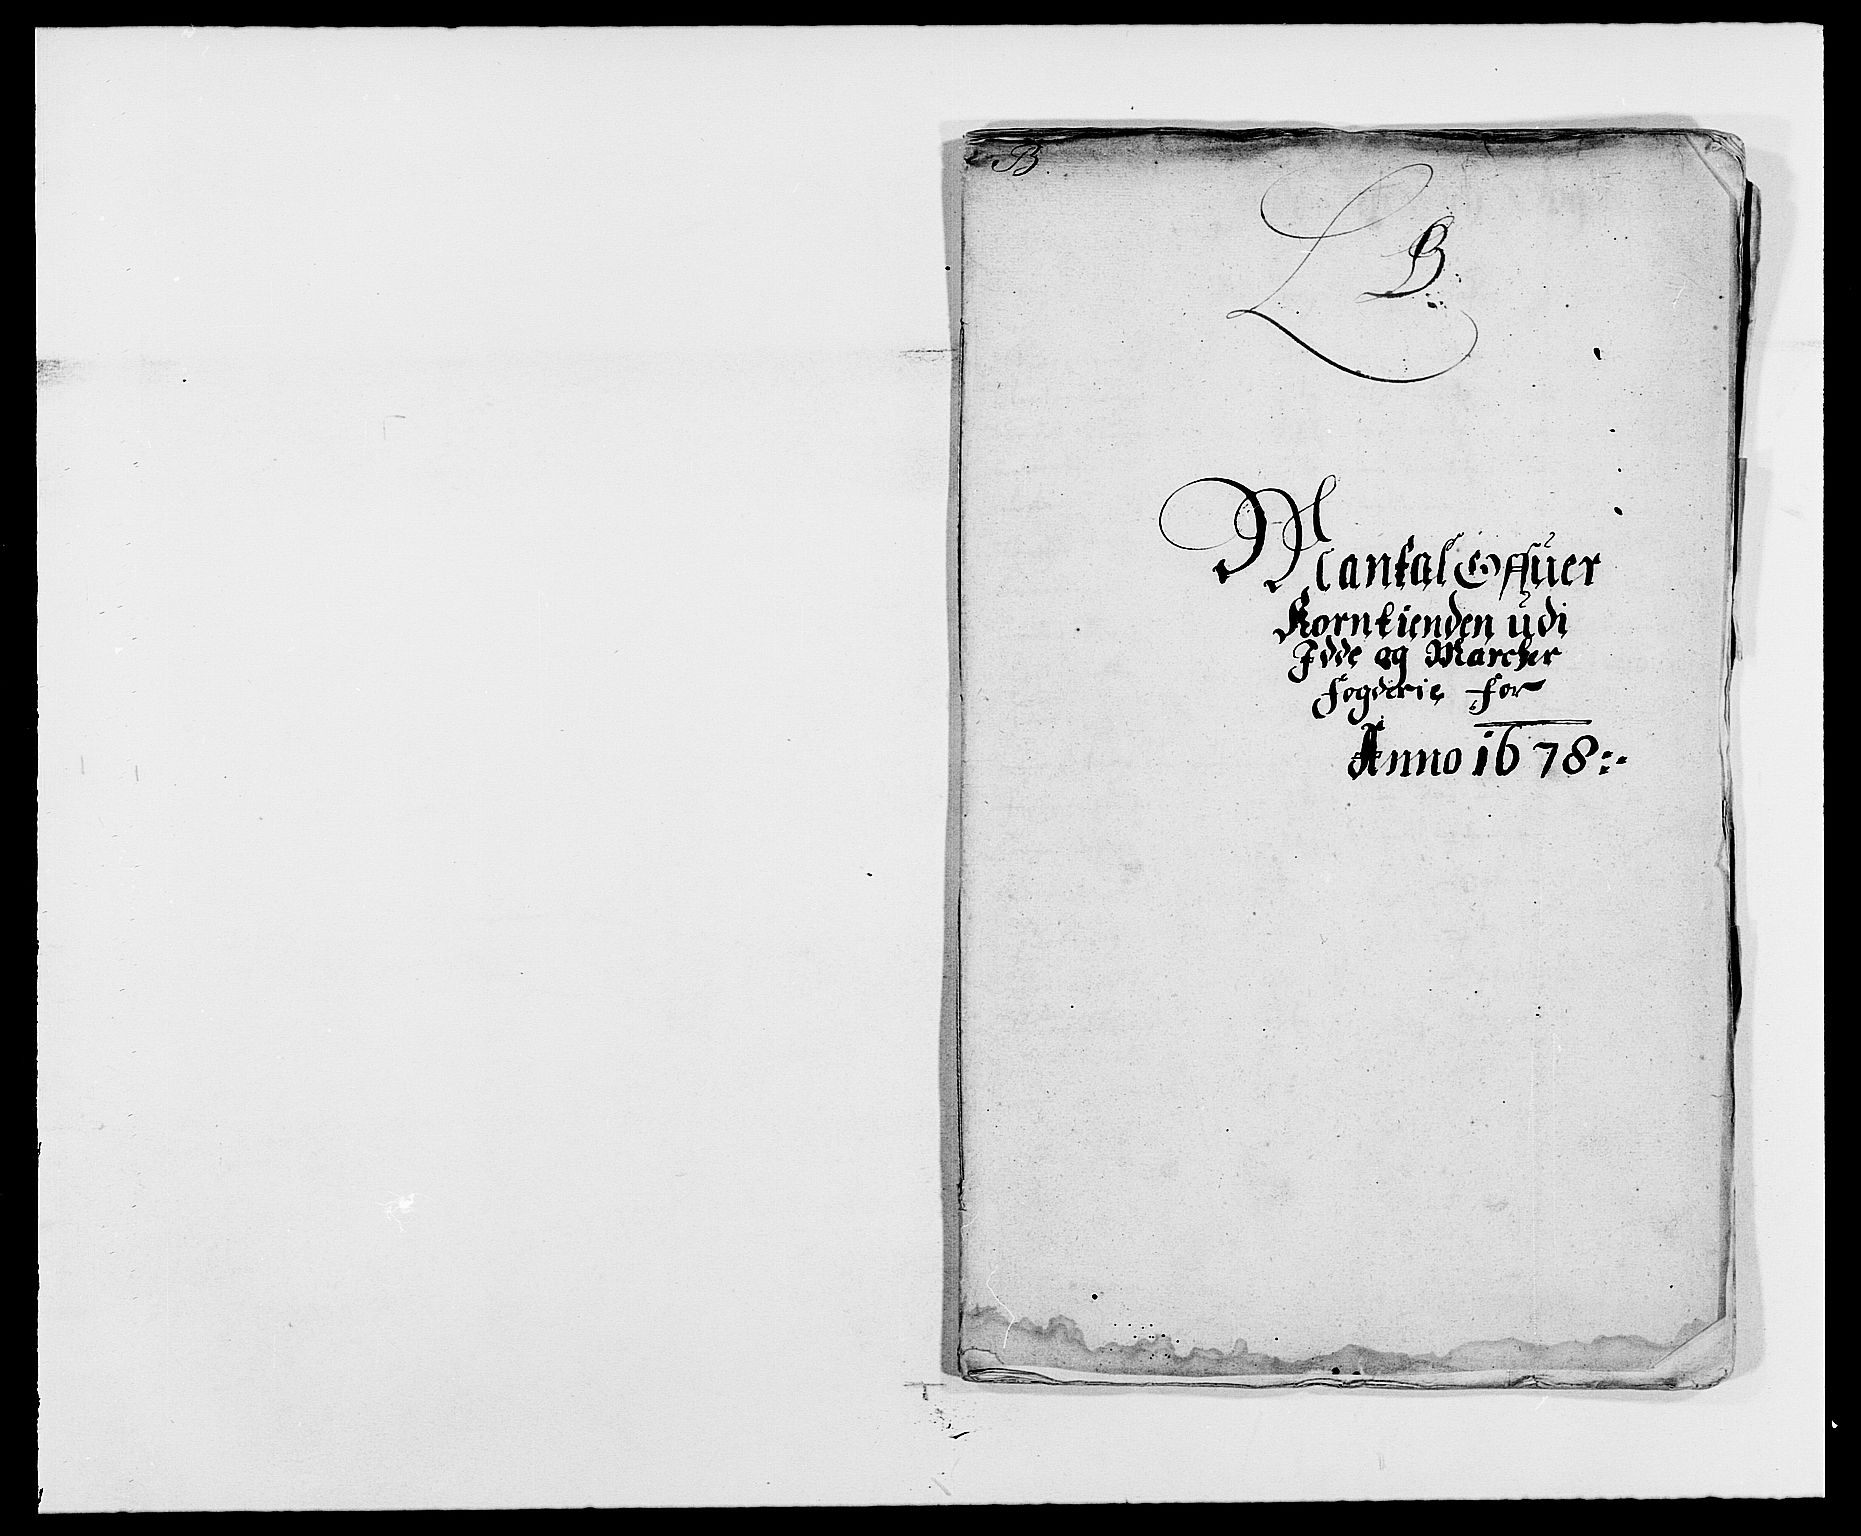 B.
L B.
Mantal Offuer
Korntienden udi
Idde og Marcker
fogderie for
Anno 1678:-